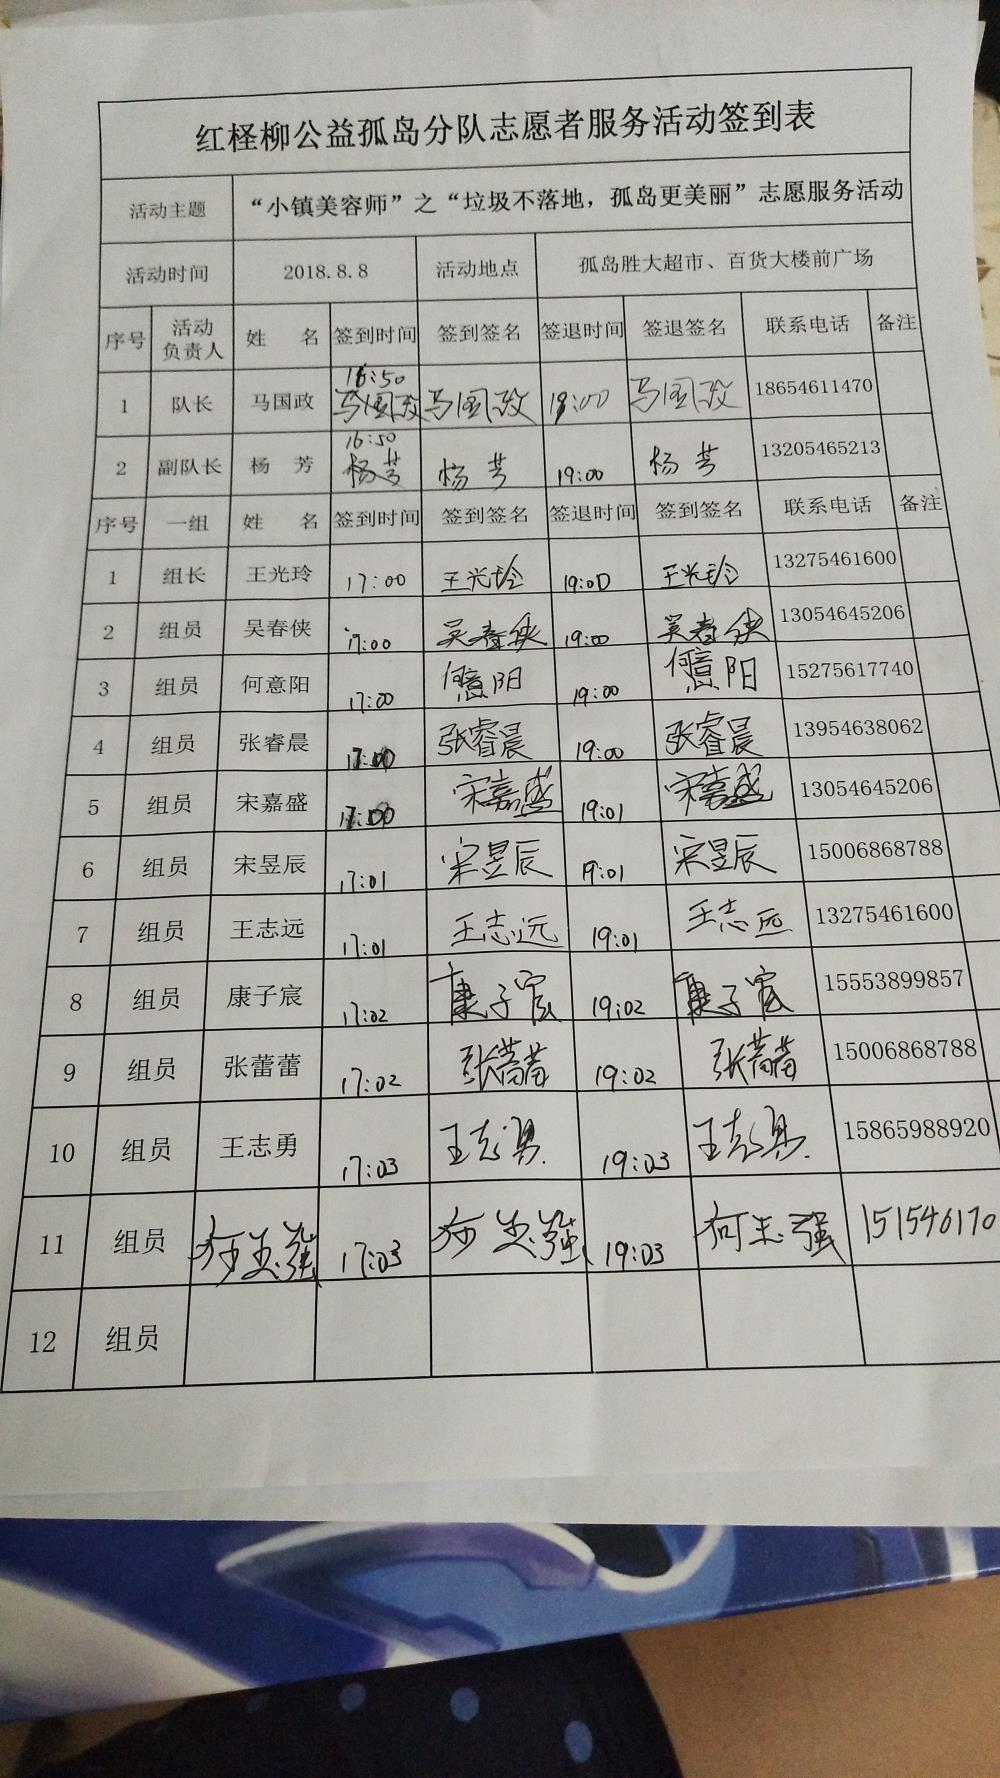 红柽柳公益孤岛分队志愿者服务活动签到表
活动主题 “小镇美容师”之“垃圾不落地，孤岛更美丽”志愿服务活动
活动时间 2018.8.8 活动地点 孤岛胜大超市、百货大楼前广场
序号 活动负责人 姓 名 签到时间 签到签名 签退时间 签退签名 联系电话 备注
1 队长 马国政 16:50 马国政 马国政 19:00 马国政 18654611470
2 副队长 杨 芳 16:50 杨芳 杨芳 19:00 杨芳 13205465213
序号 一组 姓 名 签到时间 签到签名 签退时间 签到签名 联系电话 备注
1 组长 王光玲 17:00 王光玲 19:00 王光玲 13275461600
2 组员 吴春侠 17:00 吴春侠 19:00 吴春侠 13054645206
3 组员 何意阳 17:00 何意阳 19:00 何意阳 15275617740
4 组员 张睿晨 17:00 张睿晨 19:00 张睿晨 13954638062
5 组员 宋嘉盛 17:00 宋嘉盛 19:01 宋嘉盛 13054645206
6 组员 宋昱辰 17:01 宋昱辰 19:01 宋昱辰 15006868788
7 组员 王志远 17:01 王志远 19:01 王志远 13275461600
8 组员 康子宸 17:02 康子宸 19:02 康子宸 15553899857
9 组员 张蕾蕾 17:02 张蕾蕾 19:02 张蕾蕾 15006868788
10 组员 王志勇 17:03 王志勇 19:03 王志勇 15865988920
11 组员 何志强 17:03 何志强 19:03 何志强 151546170
12 组员